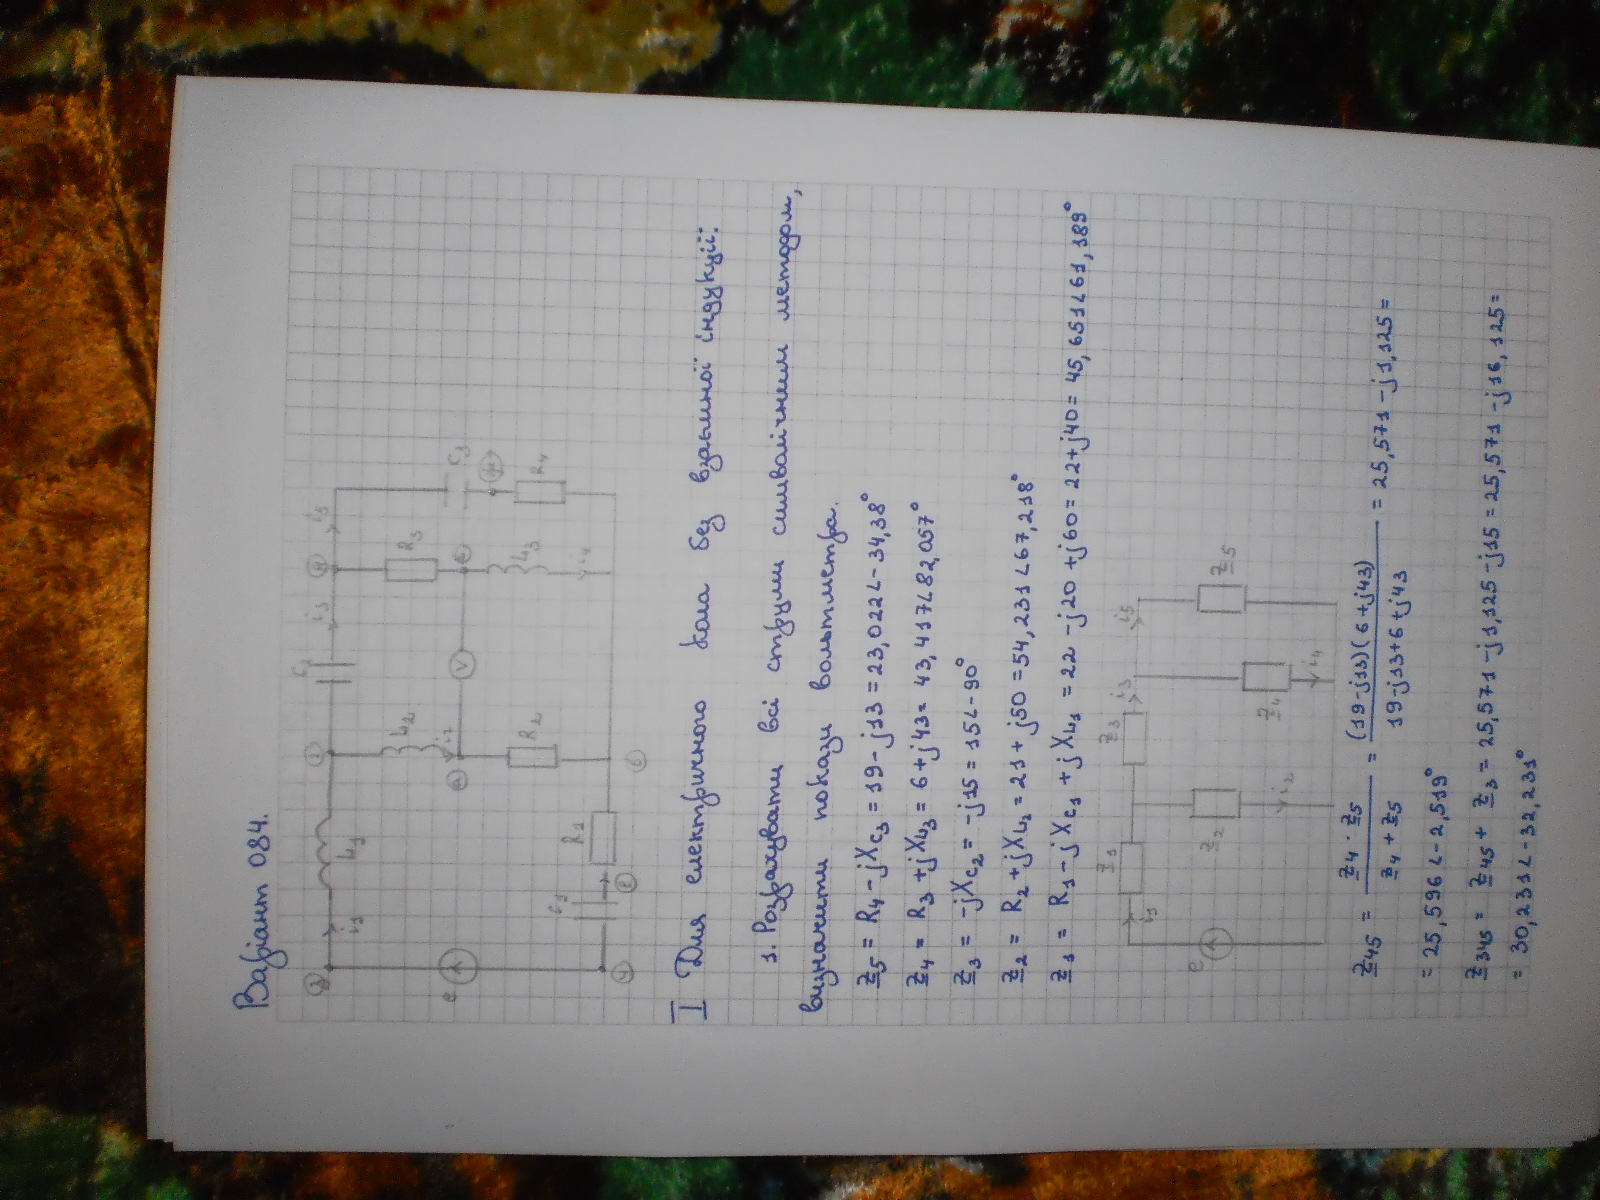 Варіант 084.
I Для електричного кола без взаємної індукції:
1. Розрахувати всі струми символічним методом,
визначити покази вольтметра.
Z5 = R4 - jXC3 = 19 - j13 = 23,022∠-34,38°
Z4 = R3 + jXL3 = 6 + j43 = 43,417∠82,057°
Z3 = -jXC2 = -j15 = 15∠-90°
Z2 = R2 + jXL2 = 21 + j50 = 54,231∠67,218°
Z1 = R1 - jXC1 + jXL1 = 22 - j20 + j60 = 22 + j40 = 45,651∠61,189°
Z45 = Z4 · Z5 / Z4 + Z5 = (19-j13)(6+j43) / 19-j13+6+j43 = 25,571 - j1,125 =
= 25,596∠-2,519°
Z345 = Z45 + Z3 = 25,571 - j1,125 - j15 = 25,571 - j16,125 =
= 30,231∠-32,231°
e
i1
L1
C2
i3
i5
L2
i2
V
R3
L3
i4
C3
R4
R2
R1
C1
e
i1
Z1
Z3
i3
i5
Z2
i2
Z4
i4
Z5